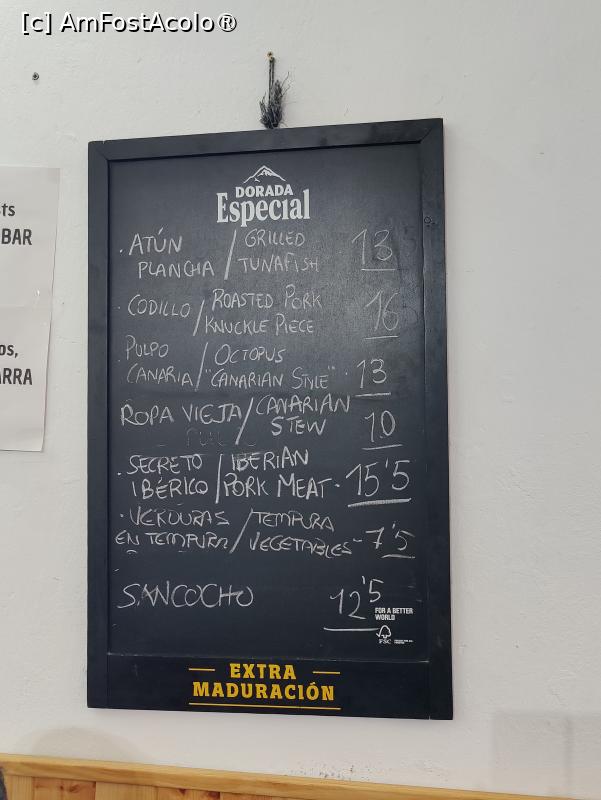 [c] AmFostAcolo®
sts
BAR
os,
ARRA
DORADA
Especial
· ATÚN / GRILLED 13
PLANCHA / TUNAFISH
· CODILLO / ROASTED PORK 16
KNUCKLE PIECE
PULPO / OCTOPUS
CANARIA / "CANARIAN STYLE" · 13
ROPA VIEJA / CANARIAN
STEW 10
· SECRETO / IBERIAN
IBÉRICO / PORK MEAT · 15'5
· VERDURAS / TEMPURA
EN TEMPURA / VEGETABLES - 7'5
SANCOCHO 12'5
FOR A BETTER
WORLD
FSC
EXTRA
MADURACIÓN